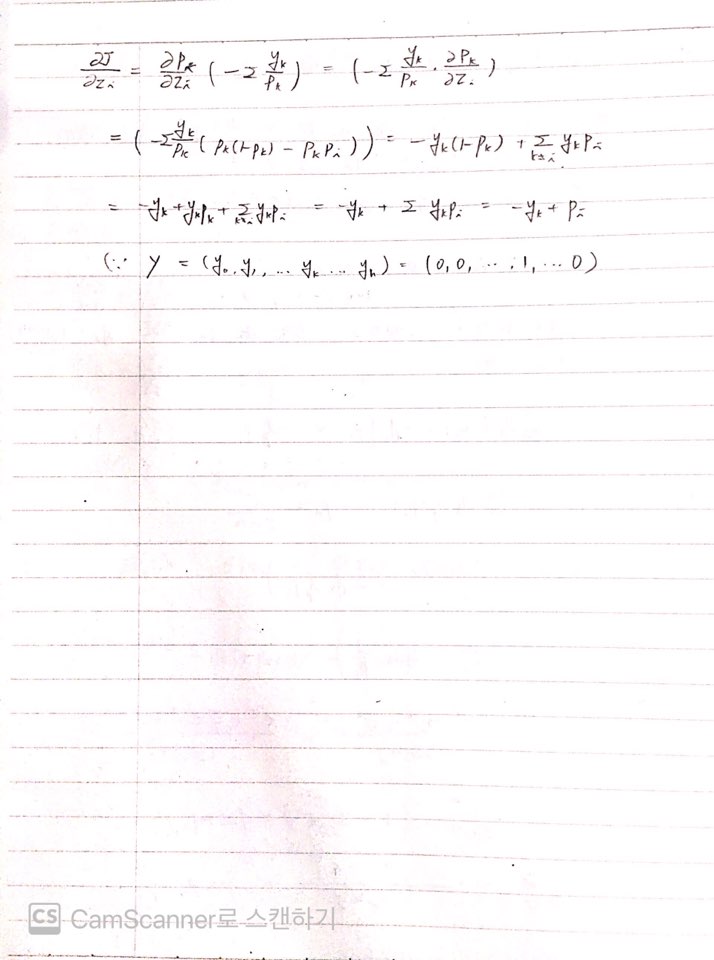 ∂J/∂z_i = ∂P_k/∂z_i (-Σ y_k/P_k) = (-Σ y_k/P_k · ∂P_k/∂z_i)
= (-Σ y_k/P_k (P_k(1-P_k) - P_k P_i)) = -y_k(1-P_k) + Σ_{k≠i} y_k P_i
= -y_k + y_k P_k + Σ_{k≠i} y_k P_i = -y_k + Σ y_k P_i = -y_k + P_i
(∵ Y = (y_0, y_1, ... y_k ... y_n) = (0, 0, ..., 1, ... 0)
CS CamScanner로 스캔하기